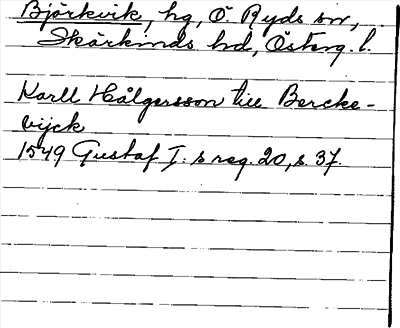 Björkvik, hg, Ö. Ryds sn,
Skärkinds hd, Österg. l.
Karll Hålgersson till Bercke-
vijck
1549 Gustaf I:s reg. 20, s. 37.